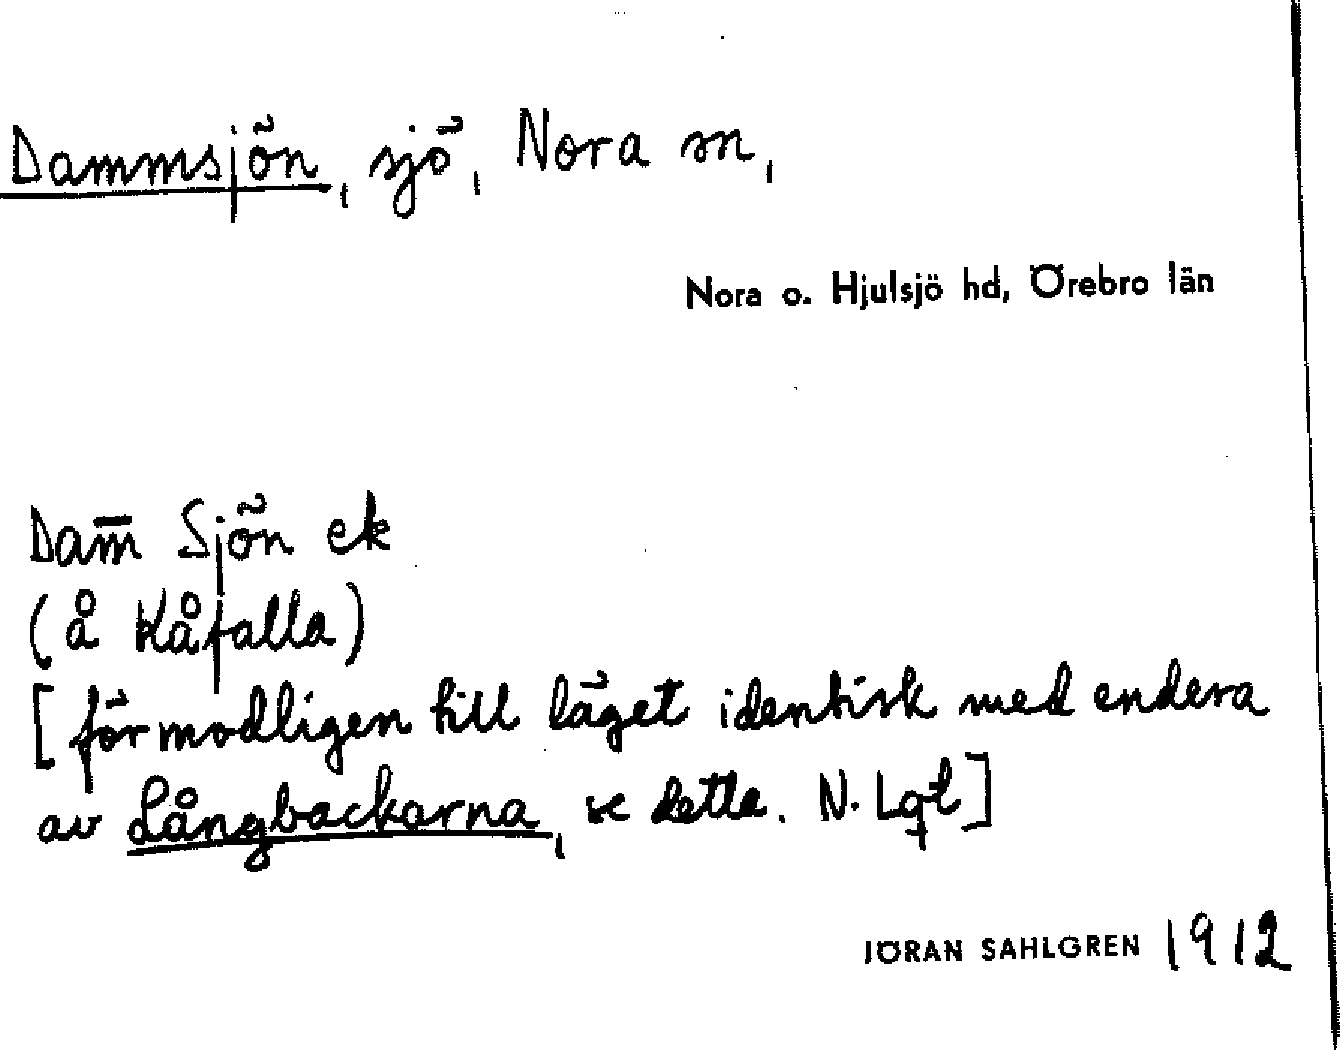 Dammsjön, sjö, Nora sn,
Nora o. Hjulsjö hd, Örebro län
Dam̄ Sjön ek
(å Kåfalla)
[förmodligen till läget identisk med endera
av Långbackarna, se detta. N. Lgt]
JÖRAN SAHLGREN 1912